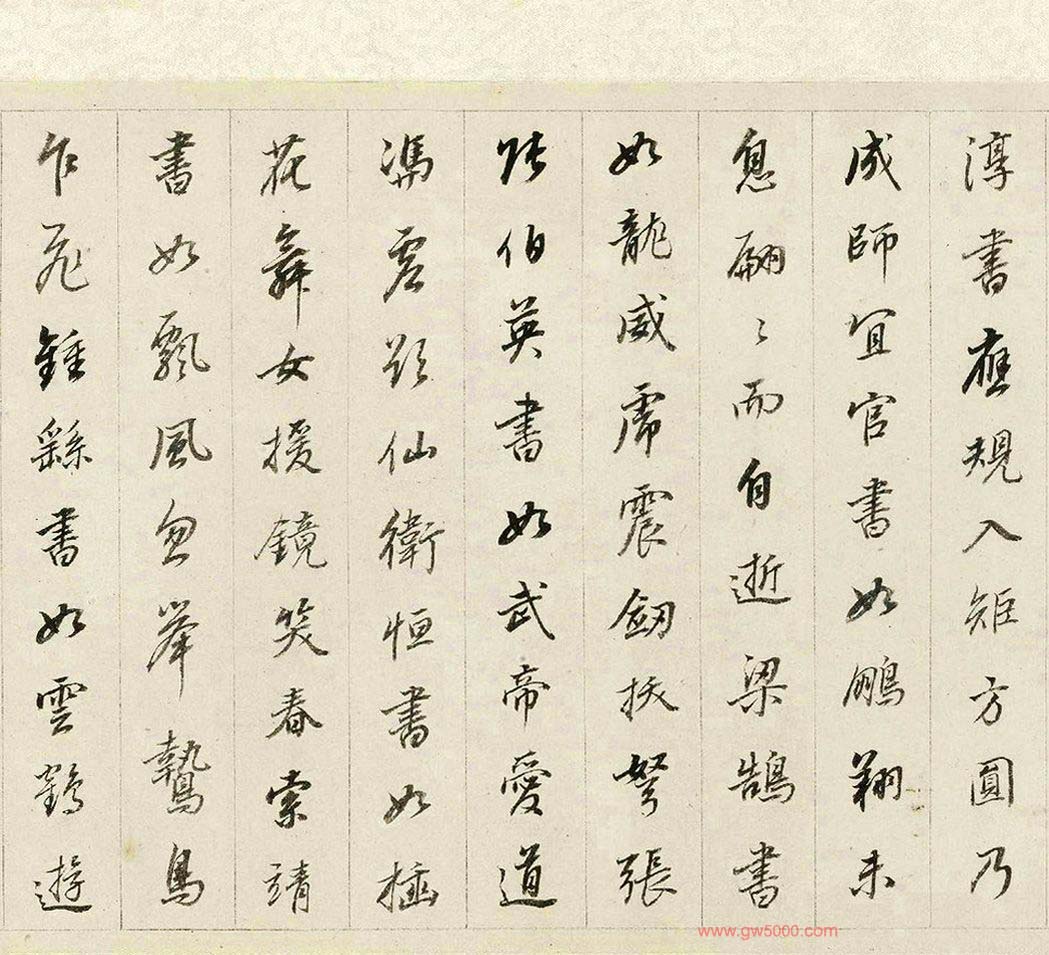 淳書應規入矩方圓乃
成師宜官書如鵬翔未
息翩〻而自逝梁鵠書
如龍威虎震劔拔弩張
張伯英書如武帝愛道
馮虛欲仙衛恒書如插
花舞女援鏡笑春索靖
書如飄風忽舉鷙鳥
乍飛鍾繇書如雲鶴遊
www.gw5000.com